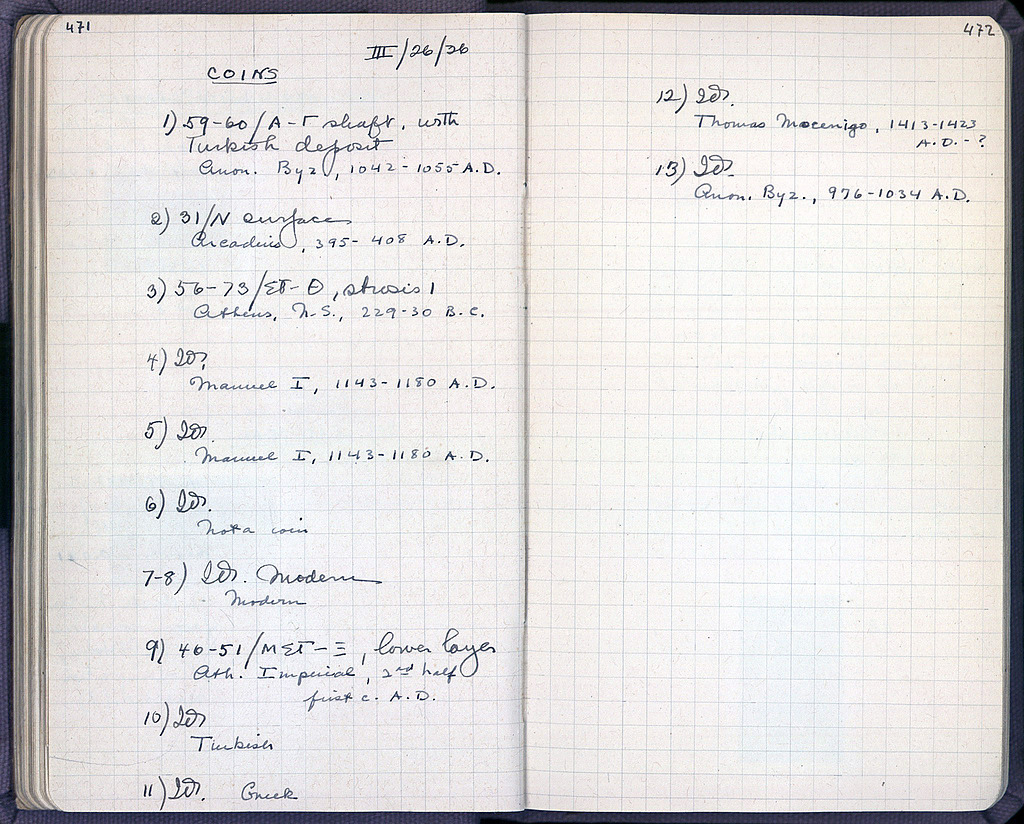 471
III/26/26
COINS
1) 59-60/A-Γ shaft, with
Turkish deposit
Anon. Byz., 1042-1055 A.D.
2) 31/N surface
Arcadius, 395-408 A.D.
3) 56-73/ΣΤ-Θ, strosis 1
Athens, N.S., 229-30 B.C.
4) Id.
Manuel I, 1143-1180 A.D.
5) Id.
Manuel I, 1143-1180 A.D.
6) Id.
Not a coin
7-8) Id. Modern
Modern
9) 46-51/ΜΣΤ-Ξ, lower layer
Ath. Imperial, 2nd half
first c. A.D.
10) Id
Turkish
11) Id. Greek
472
12) Id.
Thomas Mocenigo, 1413-1423
A.D.-?
13) Id.
Anon. Byz., 976-1034 A.D.